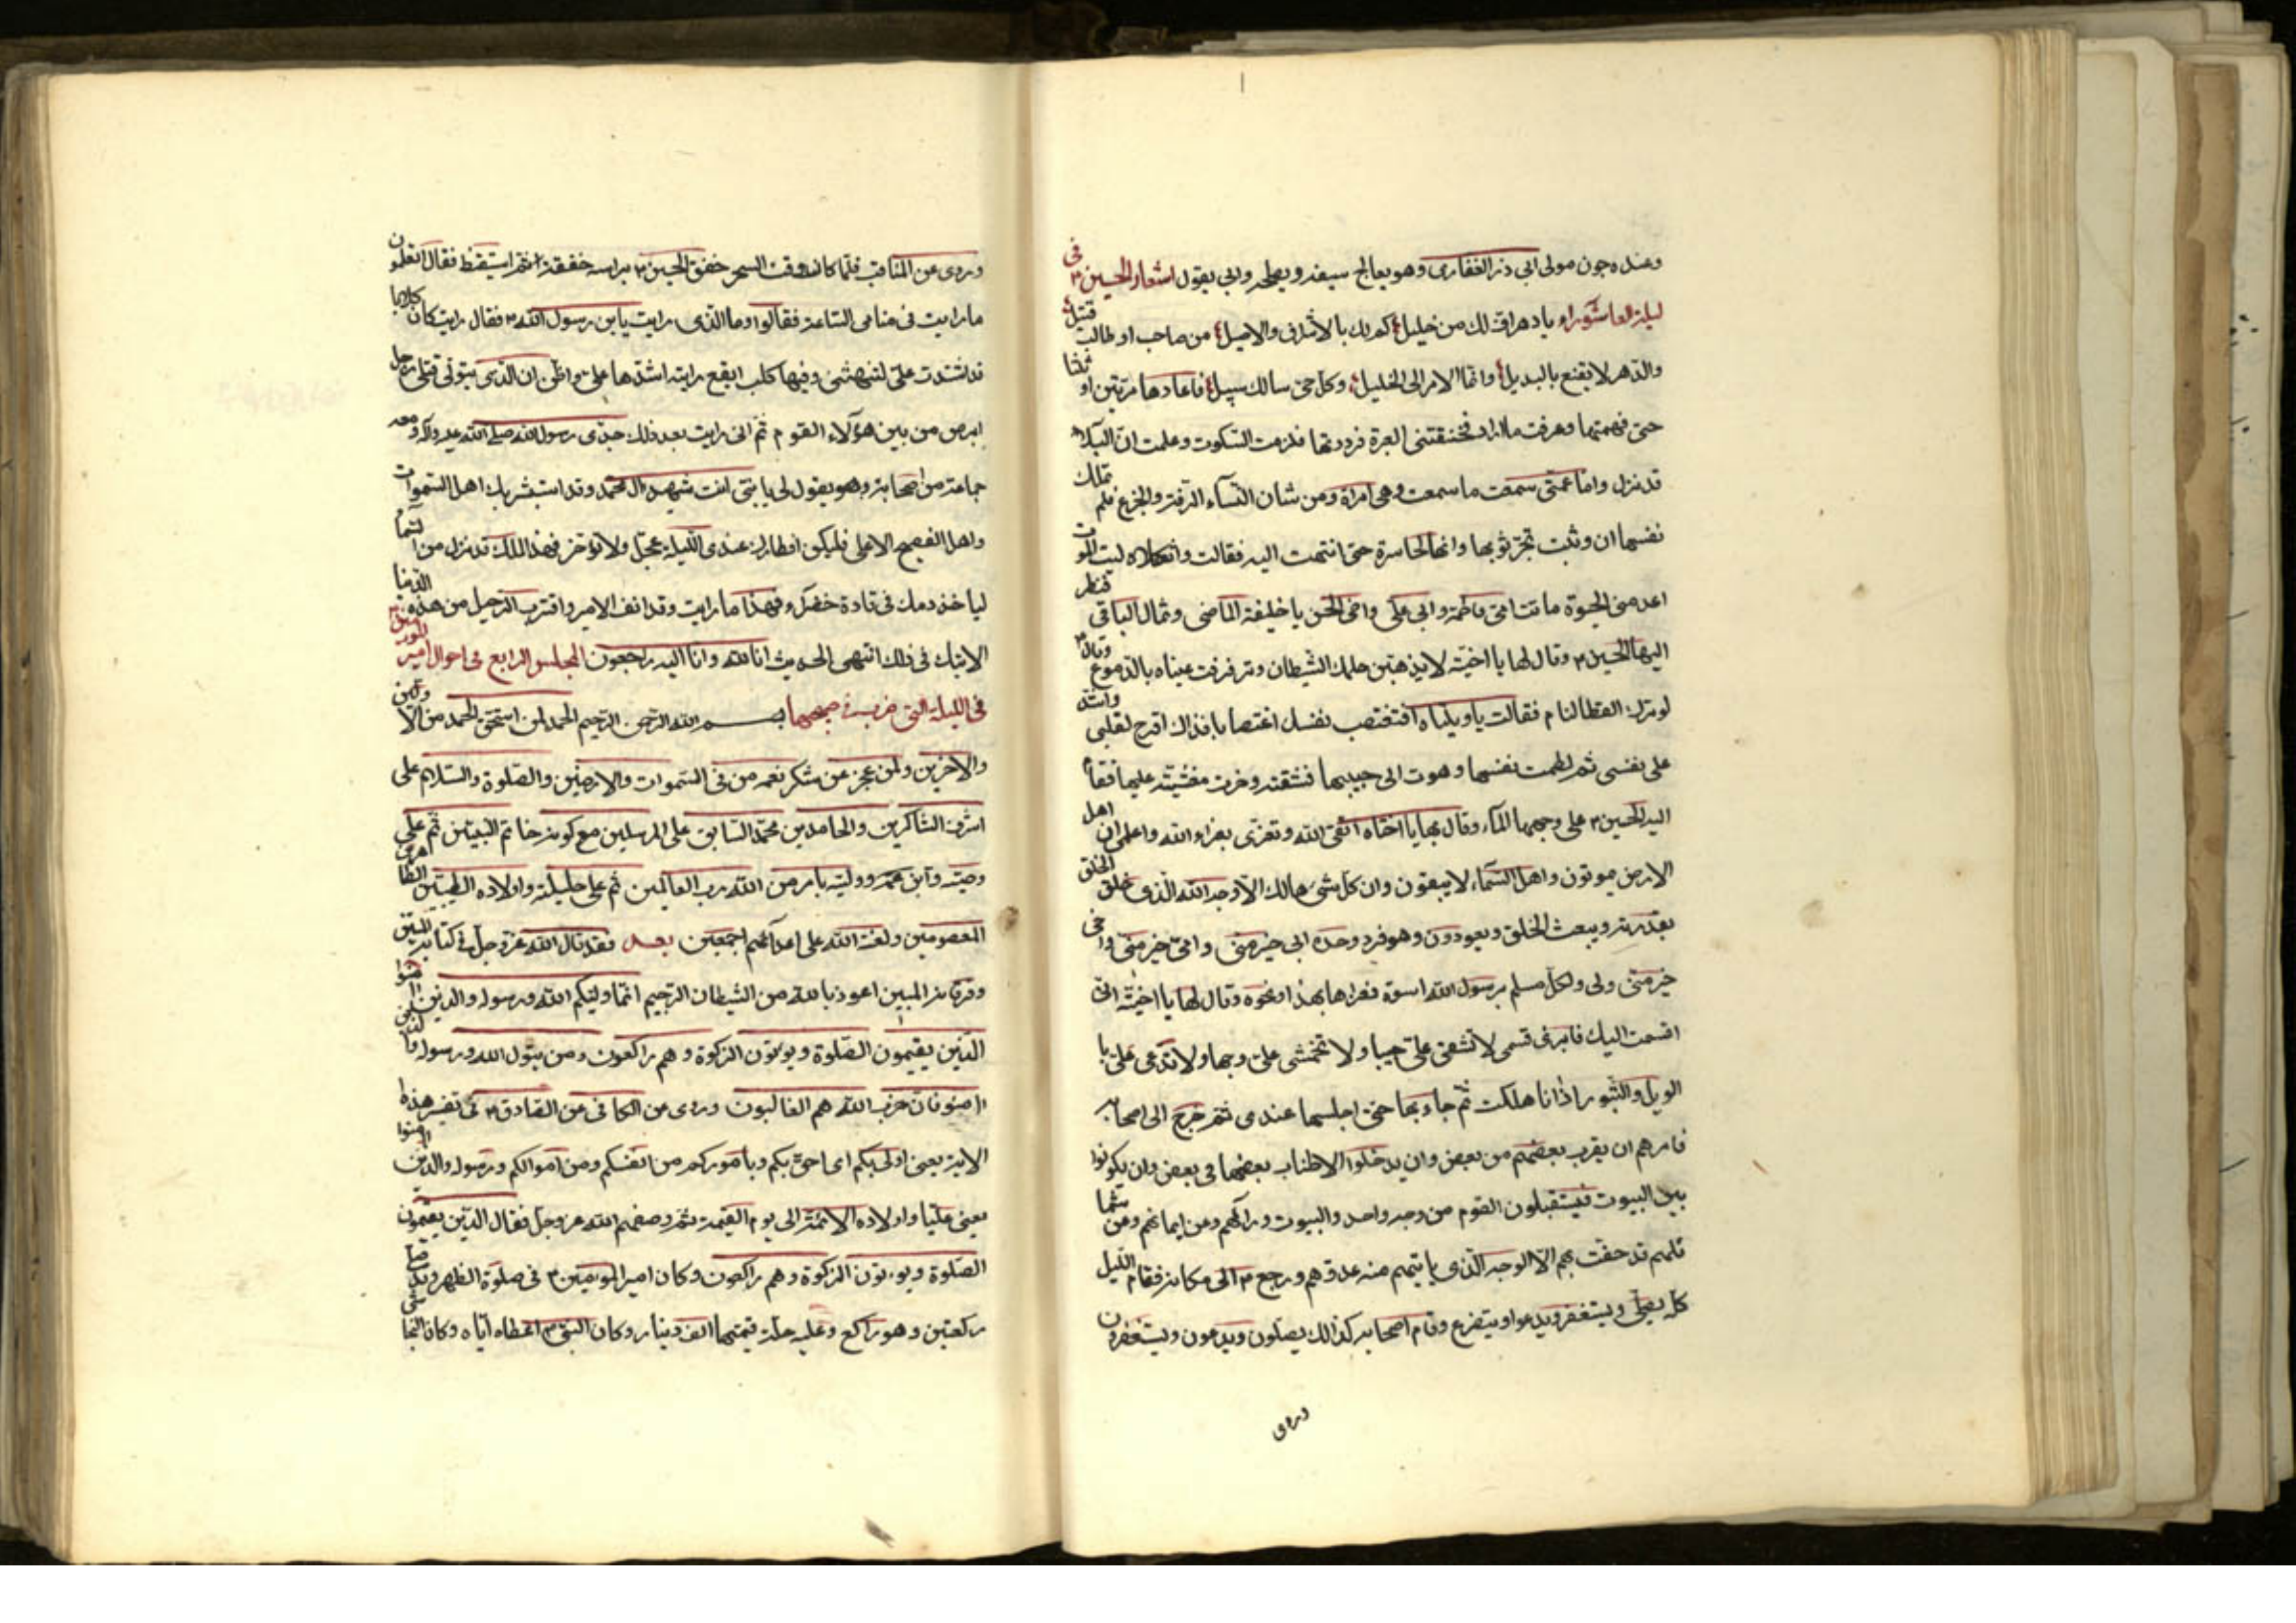 وعنده جون مولى ابى ذر الغفارى وهو يعالج سيفه ويصلحه وابى يقول اشعار الحسين ع فى
ليلة العاشوراء يا دهر اف لك من خليل كم لك بالاشراق والاصيل من صاحب او طالب قتيل
والدهر لا يقنع بالبديل وانما الامر الى الجليل وكل حى سالك سبيل فاعادها مرتين او ثلثا
حتى فهمتها وعرفت ما اراد فخنقتنى العبرة فرددتها فلزمت السكوت وعلمت ان البلاء
قد نزل واما عمتى سمعت ما سمعت وهى امراة ومن شان النسآء الرقة والجزع فلم تملك
نفسها ان وثبت تجر ثوبها وانها لحاسرة حتى انتهت اليه فقالت واثكلاه ليت الموت
اعدمنى الحيوة ماتت امى فاطمة وابى على واخى الحسن يا خليفة الماضى وثمال الباقى فنظر
اليها الحسين ع وقال لها يا اخيّة لا يذهبن حلمك الشيطان وترقرقت عيناه بالدموع وقال
لو ترك القطا لنام فقالت يا ويلتاه افتغتصب نفسك اغتصابا فذاك اقرح لقلبى واشد
على نفسى ثم لطمت نفسها وهوت الى جيبها فشقته وخرت مغشية عليها فقام
اليه الحسين ع على وجهها المآء وقال بها يا اختاه اتقى الله وتعزى بعزاء الله واعلمى ان اهل
الارض يموتون واهل السمآء لا يبقون وان كل شىء هالك الا وجه الله الذى خلق الخلق
بقدرته ويبعث الخلق ويعودون وهو فرد وحده ابى خير منى وامى خير منى واخى
خير منى ولى ولكل مسلم برسول الله اسوة فعزاها بهذا ونحوه وقال لها يا اخيّة انى
اقسمت اليك فابرى قسمى لا تشقى على جيبا ولا تخمشى على وجها ولا تدعى على با
الويل والثبور اذا انا هلكت ثم جاء بها حتى اجلسها عندى ثم خرج الى اصحابه
فامرهم ان يقرب بعضهم من بعض وان يدخلوا الاطناب بعضها فى بعض وان يكونوا
بين البيوت فيستقبلون القوم من وجه واحد والبيوت ورائهم ومن ايمانهم ومن شما
ئلهم قد حفت بهم الا الوجه الذى ياتيهم منه عدوهم ورجع ع الى مكانه فقام الليل
كله يصلى ويستغفر ويدعو ويتضرع وقام اصحابه كذالك يصلون ويدعون ويستغفرون
وروى
وروى عن المناقب فلما كان وقت السحر خفق الحسين ع براسه خفقة ثم استيقظ فقال اتعلمون
ما رايت فى منامى الساعة فقالوا وما الذى رايت يابن رسول الله ص فقال رايت كان كلابا
قد اشتدت على لتنهشنى وفيها كلب ابقع رايته اشدها على واظن ان الذى يتولى قتلى رجل
ابرص من بين هؤلاء القوم ثم انى رايت بعد ذلك جدى رسول الله صلى الله عليه وآله ومعه
جماعة من اصحابه وهو يقول لى يا بنى انت شهيد آل محمد وقد استبشر بك اهل السموات
واهل الصفيح الاعلى فليكن افطارك عندى الليلة عجل ولا تؤخر فهذا الملك قد نزل من السما
لياخذ دمك فى قارورة خضرآء وهذا ما رايت وقد انف الامر واقترب الرحيل من هذه الدنيا
لا شك فى ذلك انتهى الحديث انا لله وانا اليه راجعون المجلس الرابع فى احوال امير المؤمنين ع
فى الليلة التى ضرب فى صبحها بسم الله الرحمن الرحيم الحمد لمن استحق الحمد من الاولين
والاخرين ولمن عجز عن شكر نعمه من فى السموات والارضين والصلوة والسلام على
اشرف الشاكرين والحامدين محمد السابق على المرسلين مع كونه خاتم النبيين ثم على
وصيه وابن عمه ووليه بامر من الله رب العالمين ثم على حليلته واولاده الطيبين الطاهرين
المعصومين ولعنة الله على اعدآئهم اجمعين بعد فقد قال الله عز وجل فى كتابه المبين
وفرقانه المبين اعوذ بالله من الشيطان الرجيم انما وليكم الله ورسوله والذين آمنوا
الذين يقيمون الصلوة ويؤتون الزكوة وهم راكعون ومن يتول الله ورسوله والذين
امنوا فان حزب الله هم الغالبون وروى عن الكافى عن الصادق ع فى تفسير هذه
الاية يعنى اولى بكم اى احق بكم وباموركم من انفسكم ومن اموالكم ورسوله والذين امنوا
يعنى عليا واولاده الائمة الى يوم القيمة ثم وصفهم الله عز وجل فقال الذين يقيمون
الصلوة ويؤتون الزكوة وهم راكعون وكان امير المؤمنين ع فى صلوة الظهر وقد صلى
ركعتين وهو راكع وعليه حلة قيمتها الف دينار وكان النبى ص اعطاه اياه وكان النجا